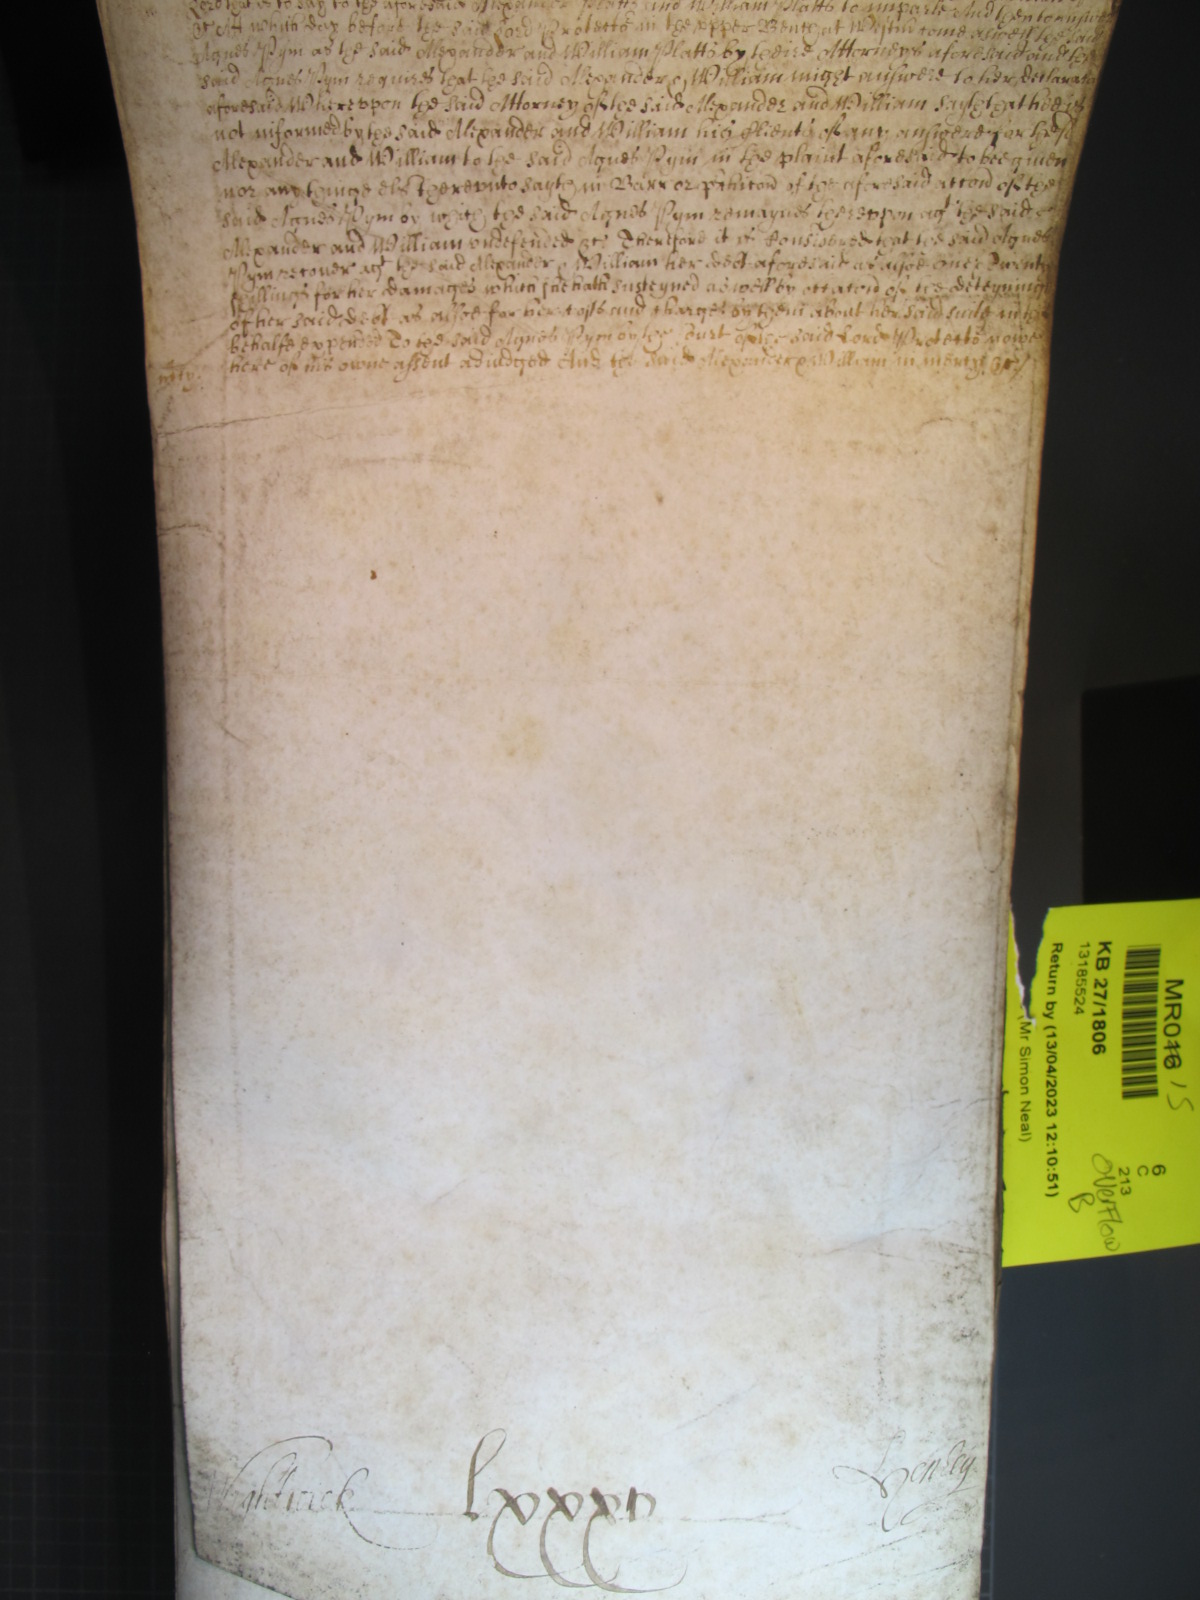 here that is to say to the aforesaid Alexander Platts and William Platts to imparle And then to answere
&c At which day before the said Lord Protector in the upper Bench at Westm come aswell the said
Agnes Pym as the said Alexander and William Platts by theire Attorneys aforesaid and the
said Agnes Pym requires that the said Alexander & William might answere to her declaracon
aforesaid Whereuppon the said Attorney of the said Alexander and William sayth that hee is
not informed by the said Alexander and William his Clients of any answere for the sd
Alexander and William to the said Agnes Pym in the plaint aforesaid to bee given
nor any thinge els thereunto sayth in Barr or of the aforesaid accon of the
said Agnes Pym by which the said Agnes Pym remaynes thereuppon agt the said
Alexander and William undefended &c Therefore it is Considered that the said Agnes
Pym recover agt the said Alexander & William her debt aforesaid as alsoe one & Twenty
shillings for her damages which shee hath susteyned aswell by occacon of the deteyninge
of her said debt as alsoe for her costs and charges by them about her said suite in that
behalfe expended To the said Agnes Pym by the Court of the said Lord Protector nowe
here of his owne assent adiudged And the said Alexander & William in mercy &c
mcy.
Lendley
lxxxii
MR046 15
KB 27/1806
13185524
Return by (13/04/2023 12:10:51)
(Mr Simon Neal)
6
C
213
Overflow
B